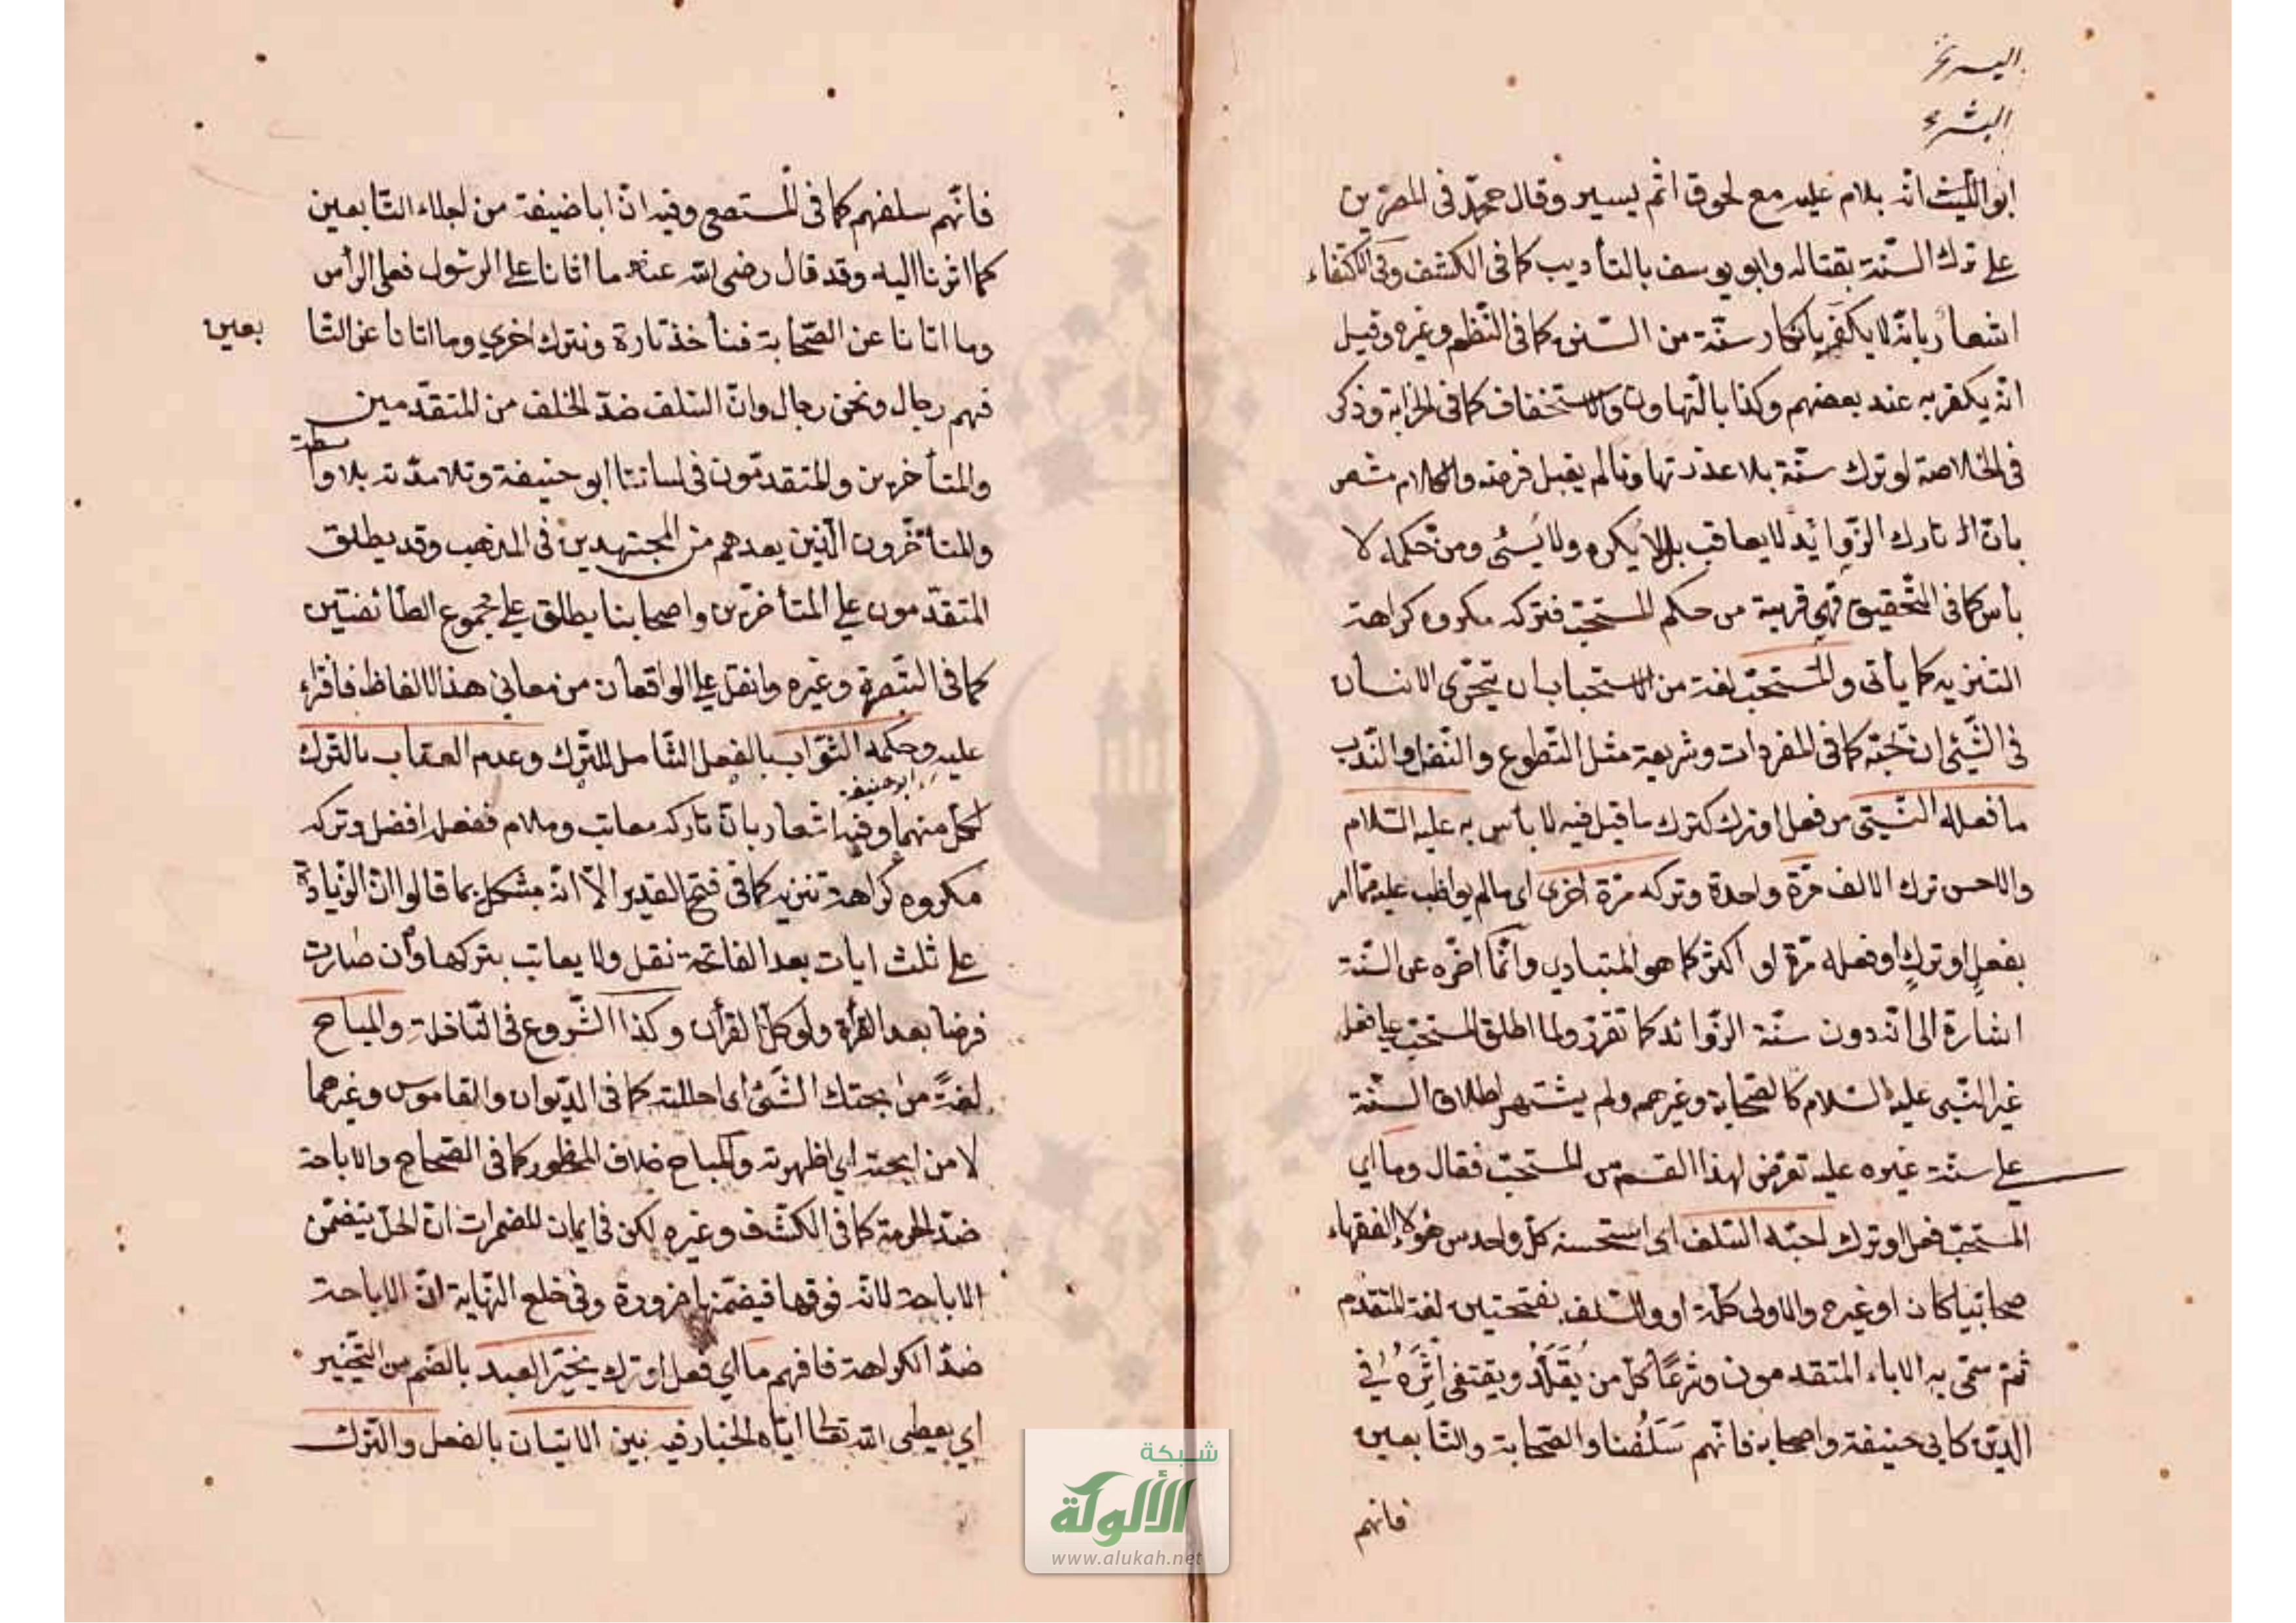 ابو الليث انه يلام عليه مع لحوق اثم يسير وقال محمد في المصرين
على ترك السنة بقتاله وابو يوسف بالتأديب كما في الكشف وفي الاكتفاء
اشعار بانه لا يكفر بانكار سنة من السنن كما في النظم وغيره وقيل
انه يكفر به عند بعضهم وكذا بالتهاون والاستخفاف كما في الخزانة وذكر
في الخلاصة لو ترك سنة بلا عذر تهاونا لم يقبل فرضه والكلام مشعر
بان تارك الزوائد لا يعاقب بل لا يكره ولا يسئ ومن حكمه لا
بأس كما في التحقيق فهي قريبة من حكم المستحب فتركه مكروه كراهة
التنزيه كما يأتي والمستحب لغة من الاستحباب ان يتحرى الانسان
في الشئ ان تحبه كما في المفردات وشريعة مثل التطوع والنفل والندب
ما فعله النبي من فعل او ترك كترك ما قيل فيه لا بأس به عليه السلام
والاحسن ترك الالف مرة واحدة وتركه مرة اخرى اي ما لم يواظب عليه مما امر
بفعل او ترك او فعله مرة او اكثر كما هو المتبادر وانما اخره عن السنة
اشارة الى انه دون سنة الزوائد كما تقرر ولما اطلق المستحب على فعل
غير النبي عليه السلام كالصحابة وغيرهم ولم يشتهر اطلاق السنة
على سنة غيره عليه تعرض لهذا القسم من المستحب فقال وما اي
المستحب فعل او ترك احبه السلف اي استحسنه كل واحد من هؤلاء الفقهاء
صحابيا كان او غيره والاولى كلمة او والسلف بفتحتين لغة المتقدم
ثم سمى به الاباء المتقدمون وشرعا كل من يقلد ويقتفى اثره في
الدين كابي حنيفة واصحابه فانهم سلفنا والصحابة والتابعين
فانهم
فانهم سلفهم كما في المستصفى وفيه ان ابا ضيفة من اجلاء التابعين
كما اشرنا اليه وقد قال رضى الله عنه ما اتانا على الرسول فعلى الرأس
وما اتانا عن الصحابة فنأخذ تارة ونترك اخرى وما اتانا عن التا بعين
فهم رجال ونحن رجال وان السلف ضد الخلف من المتقدمين
والمتأخرين والمتقدمون في لساننا ابو حنيفة وتلامذته بلا واسطة
والمتأخرون الذين بعدهم من المجتهدين في المذهب وقد يطلق
المتقدمون على المتأخرين واصحابنا يطلق على مجموع الطائفتين
كما في التبصرة وغيره وانقل على الواقعات من معاني هذا الالفاظ فاقراء
عليه وحكمه الثواب بالفعل الشامل للترك وعدم العقاب بالترك
لكل منهما وفيه اشعار بان تاركه معاتب وملام ففعله افضل وتركه
ابو حنيفة
مكروه كراهة تنزيه كما في فتح القدير الا انه مشكل بما قالوا ان الزيادة
على ثلث ايات بعد الفاتحة نفل ولا يعاتب بتركها وان صارت
فرضا بعد القرأة ولو كل القرأن وكذا الشروع في النافلة والمباح
لغة من ابحتك الشئ اي احللته كما في الديوان والقاموس وغيرهما
لا من ابحته اي اظهرته والمباح خلاف المحظور كما في الصحاح والاباحة
ضد الحرمة كما في الكشف وغيره لكن في ايمان المضمرات ان الحل يتضمن
الاباحة لانه فوقها فيضمنها ضرورة وفي خلع النهاية ان الاباحة
ضد الكراهة فافهم ما اي فعل او ترك يخير العبد بالضم من التخيير
اي يعطى الله تعالى اياه الخيار فيه بين الاتيان بالفعل والترك
شبكة
الألوكة
www.alukah.net